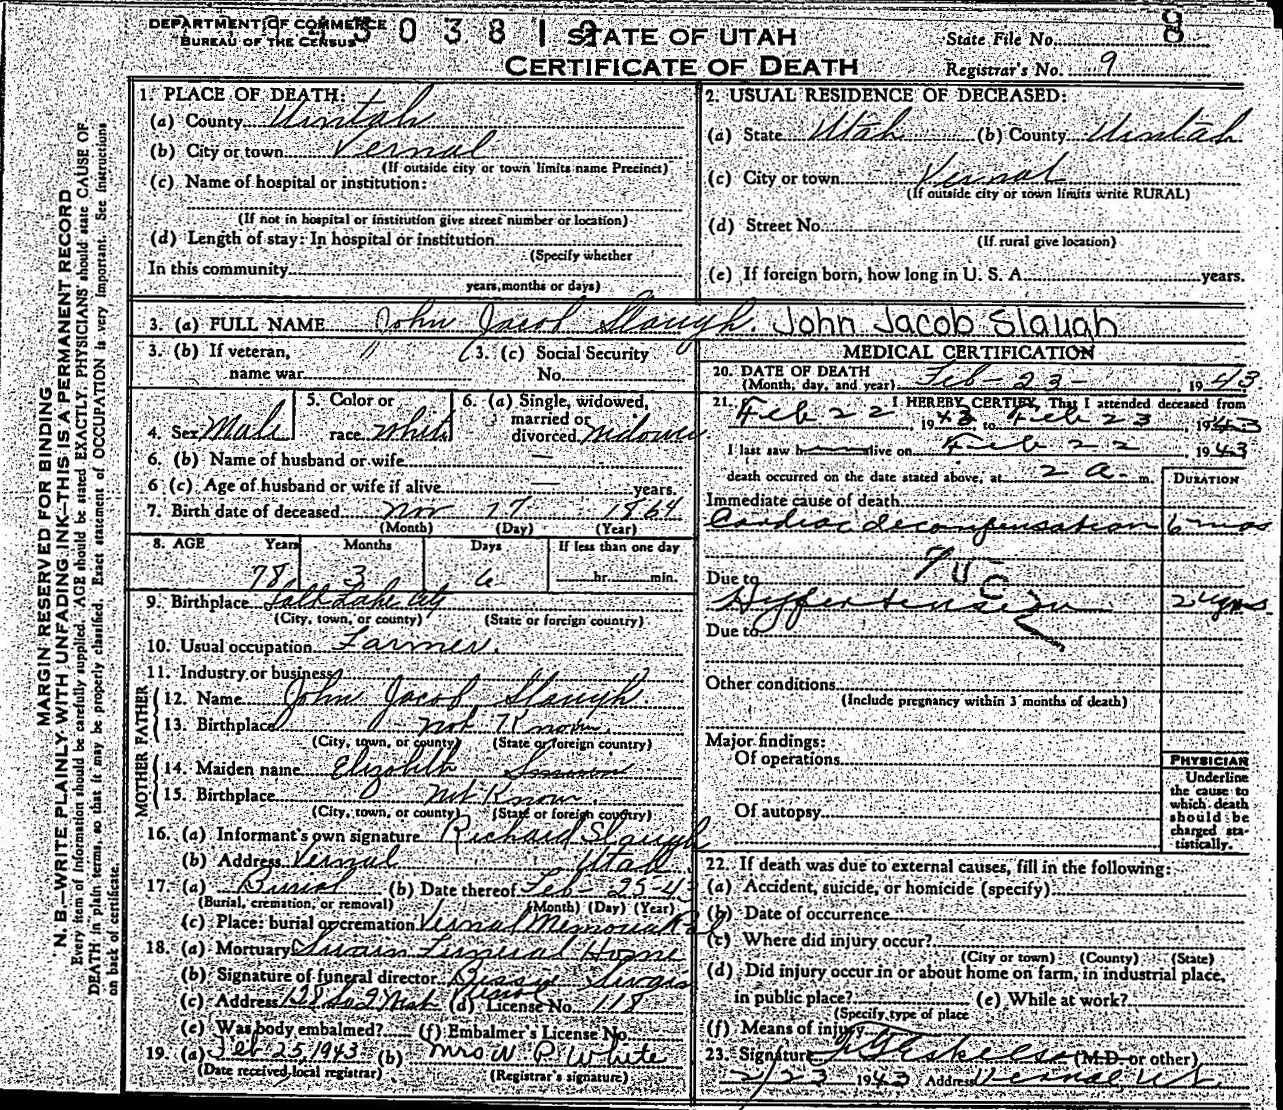 DEPARTMENT OF COMMERCE
BUREAU OF THE CENSUS
STATE OF UTAH
CERTIFICATE OF DEATH
State File No. 8
Registrar's No. 9
MARGIN RESERVED FOR BINDING
N. B.—WRITE PLAINLY WITH UNFADING INK—THIS IS A PERMANENT RECORD
Every item of information should be carefully supplied. AGE should be stated EXACTLY. PHYSICIANS should state CAUSE OF
DEATH in plain terms, so that it may be properly classified. Exact statement of OCCUPATION is very important. See instructions
on back of certificate.
1. PLACE OF DEATH:
(a) County Uintah
(b) City or town Vernal
(If outside city or town limits name Precinct)
(c) Name of hospital or institution:
(If not in hospital or institution give street number or location)
(d) Length of stay: In hospital or institution
(Specify whether
In this community
years, months or days)
2. USUAL RESIDENCE OF DECEASED:
(a) State Utah (b) County Uintah
(c) City or town Vernal
(If outside city or town limits write RURAL)
(d) Street No.
(If rural give location)
(e) If foreign born, how long in U. S. A. years.
3. (a) FULL NAME John Jacob Slaugh. John Jacob Slaugh
3. (b) If veteran,
name war
3. (c) Social Security
No.
4. Sex Male
5. Color or
race White
6. (a) Single, widowed,
married or
divorced Widower
6. (b) Name of husband or wife —
6 (c). Age of husband or wife if alive — years.
7. Birth date of deceased Nov 17 1864
(Month) (Day) (Year)
8. AGE Years Months Days If less than one day
78 3 6 hr. min.
9. Birthplace Salt Lake City
(City, town, or county) (State or foreign country)
10. Usual occupation Farmer.
11. Industry or business
FATHER
12. Name John Jacob Slaugh.
13. Birthplace not Know.
(City, town, or county) (State or foreign country)
MOTHER
14. Maiden name Elizabeth
15. Birthplace not Know.
(City, town, or county) (State or foreign country)
16. (a) Informant's own signature Richard Slaugh
(b) Address Vernal Utah
17. (a) Burial (b) Date thereof Feb-25-43
(Burial, cremation, or removal) (Month) (Day) (Year)
(c) Place: burial or cremation Vernal Memorial
18. (a) Mortuary Swain Funeral Home
(b) Signature of funeral director
(c) Address (d) License No. 118
(e) Was body embalmed? (f) Embalmer's License No.
19. (a) Feb 25, 1943 (b) Mrs N. P. White
(Date received, local registrar) (Registrar's signature)
MEDICAL CERTIFICATION
20. DATE OF DEATH
(Month, day, and year) Feb-23-, 1943.
21. I HEREBY CERTIFY, That I attended deceased from
Feb 22, 1943 to Feb 23, 1943
I last saw h alive on Feb 22 1943
death occurred on the date stated above, at 2 a. m.
DURATION
Immediate cause of death
Cardiac decompensation 6 mos
Due to
Hypertension 2 yrs
Due to
Other conditions
(Include pregnancy within 3 months of death)
Major findings:
Of operations
Of autopsy
PHYSICIAN
Underline
the cause to
which death
should be
charged sta-
tistically.
22. If death was due to external causes, fill in the following:
(a) Accident, suicide, or homicide (specify)
(b) Date of occurrence
(c) Where did injury occur?
(City or town) (County) (State)
(d) Did injury occur in or about home on farm, in industrial place,
in public place? (e) While at work?
(Specify type of place
(f) Means of injury
23. Signature (M.D. or other)
2/23 1943 Address Vernal, Ut.